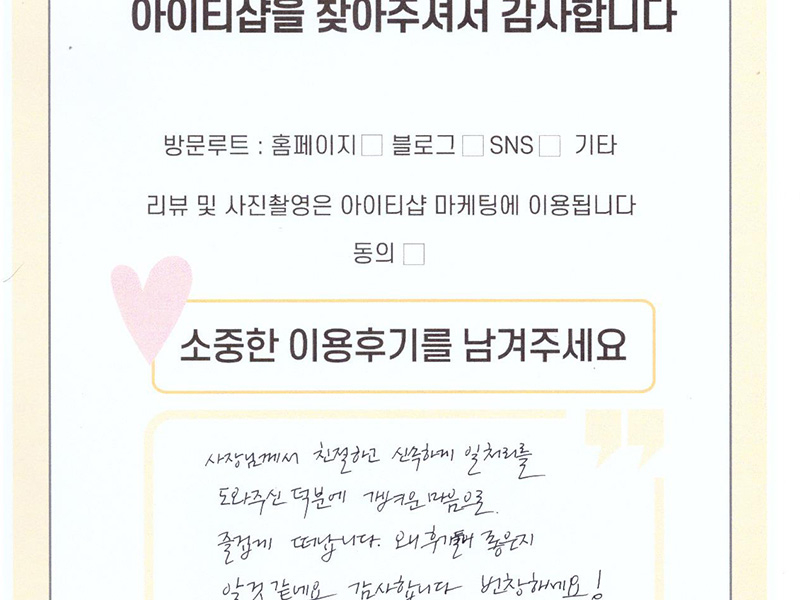 아이티샵을 찾아주셔서 감사합니다
방문루트 : 홈페이지□ 블로그□ SNS□ 기타
리뷰 및 사진촬영은 아이티샵 마케팅에 이용됩니다
동의 □
소중한 이용후기를 남겨주세요
사장님께서 친절하고 신속하게 일처리를
도와주신 덕분에 가벼운 마음으로
즐겁게 떠납니다. 왜 후기가 좋은지
알것 같네요 감사합니다 번창하세요!